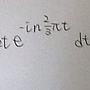 t e^{-in\frac{2}{3}\pi t} dt